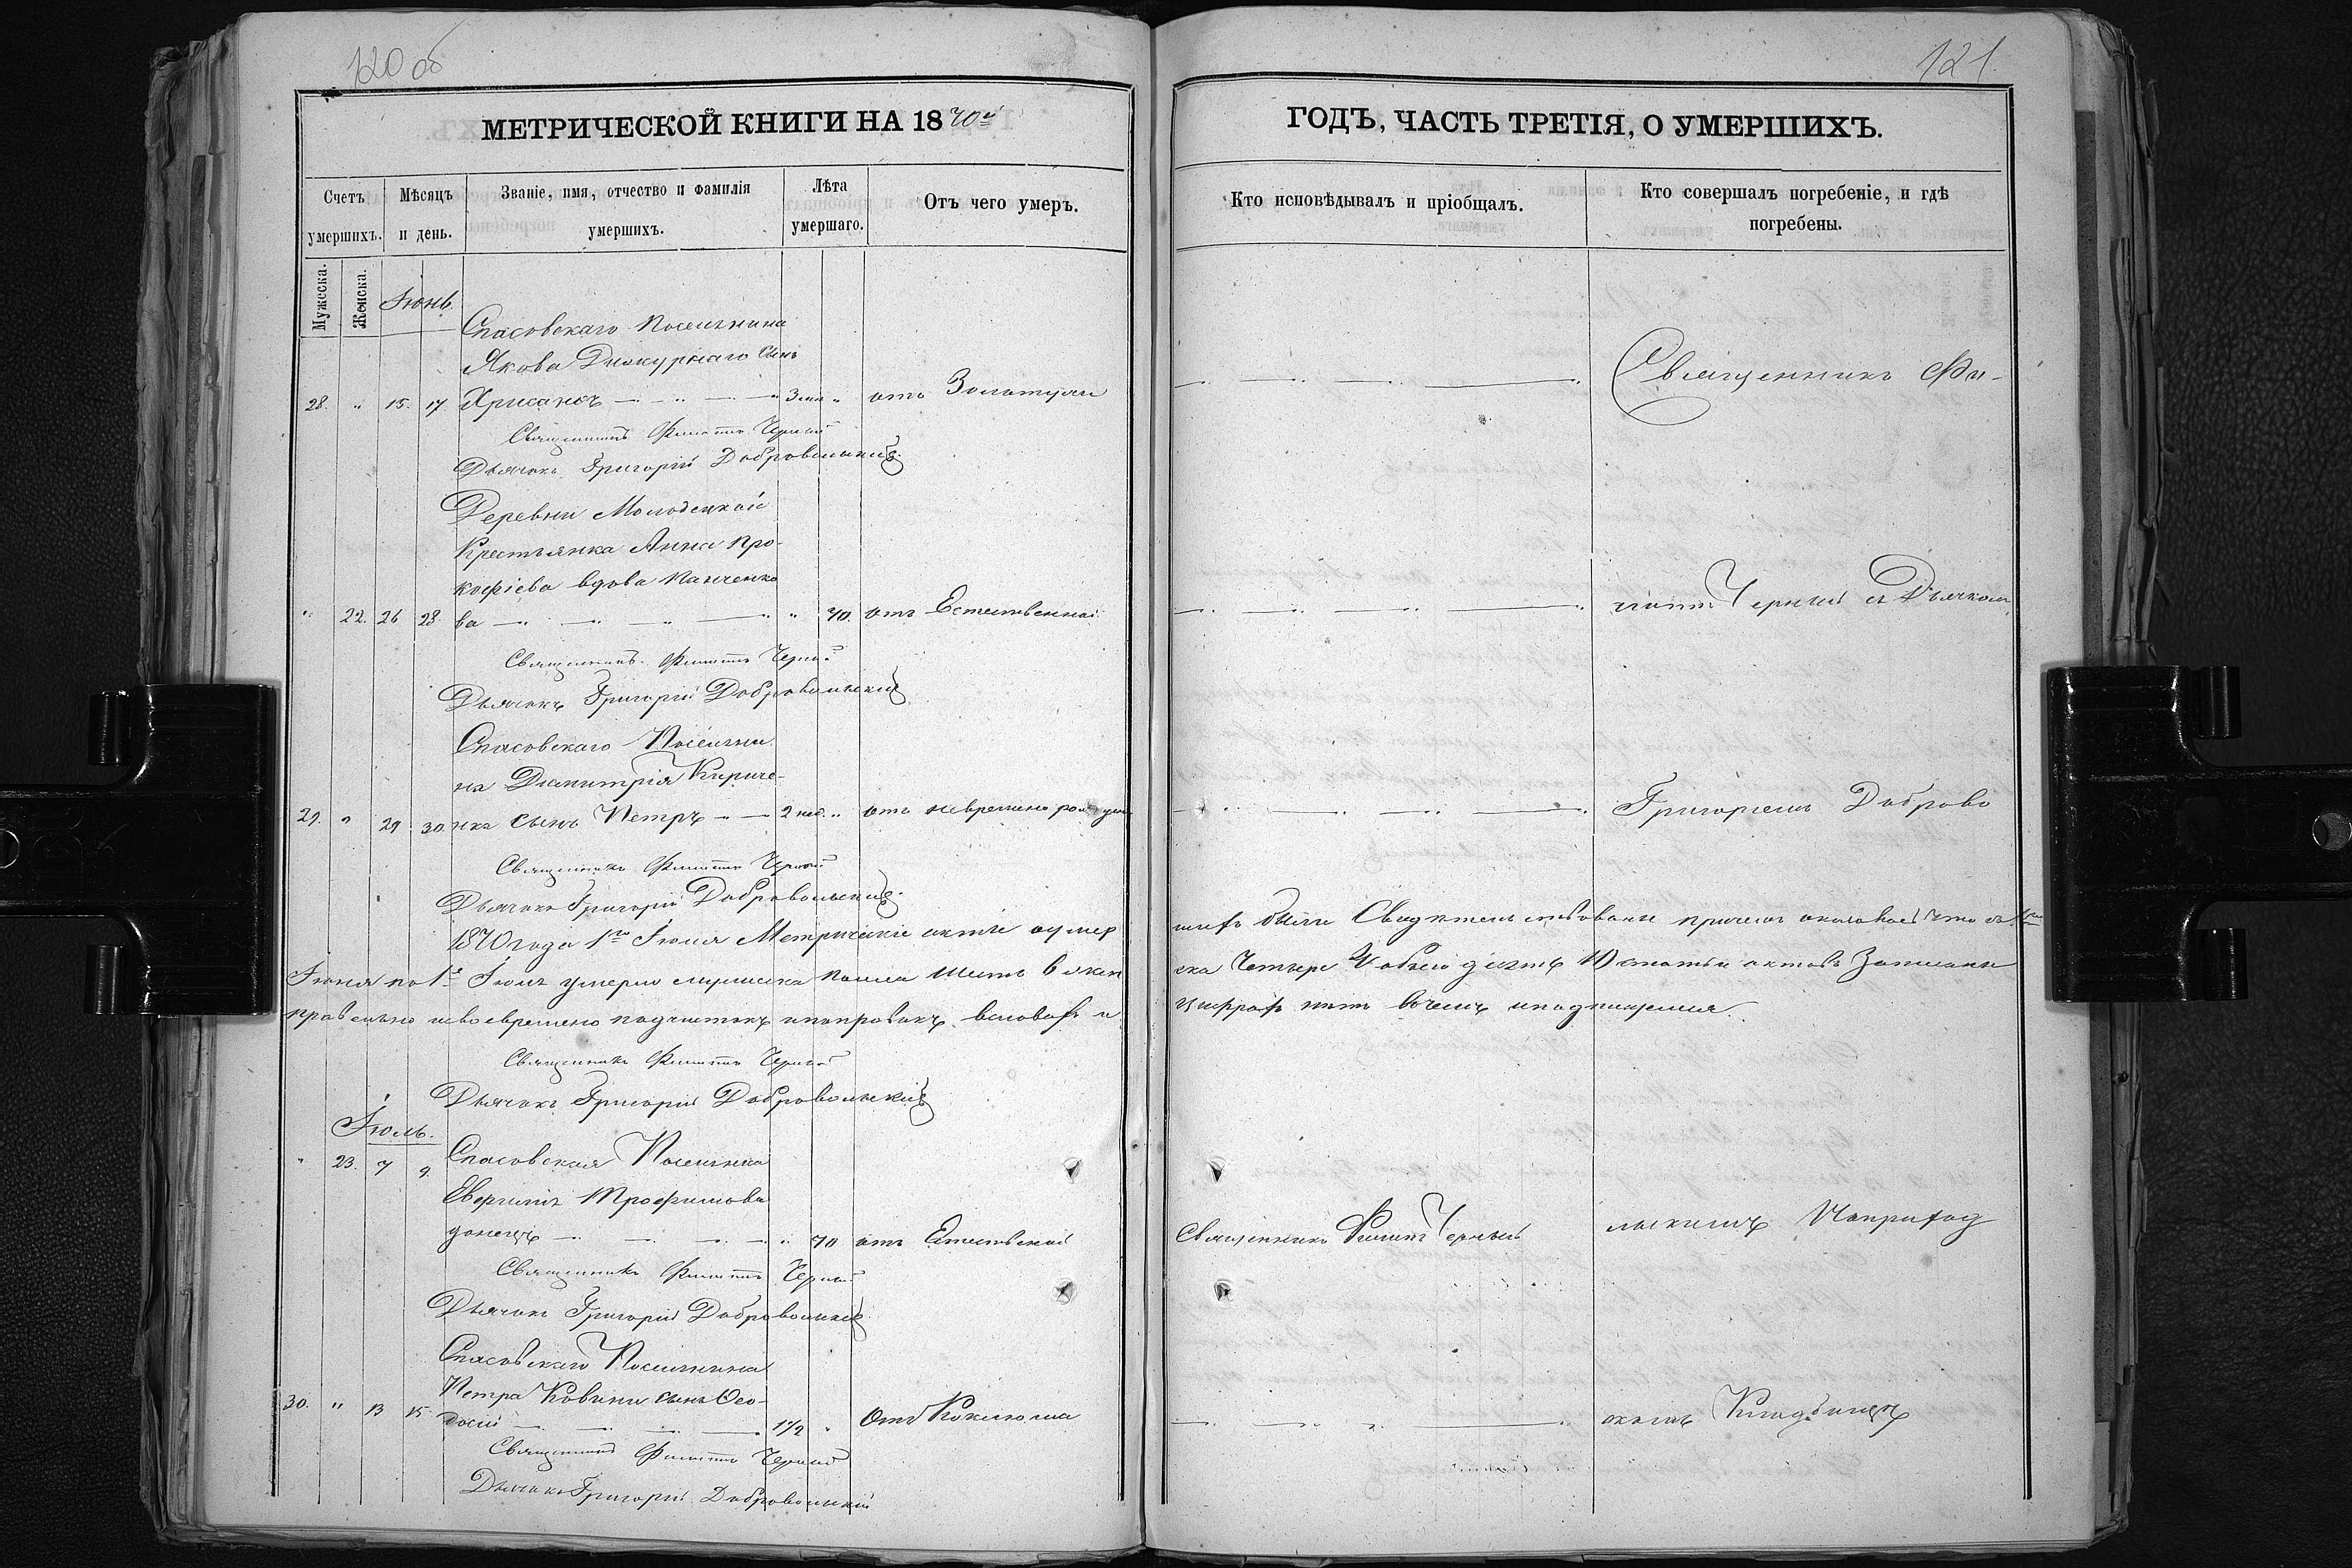 120 об
МЕТРИЧЕСКОЙ КНИГИ НА 1870й
Счетъ умершихъ.
Мѣсяцъ и день.
Званіе, имя, отчество и фамилія умершихъ.
Лѣта умершаго.
Отъ чего умеръ.
Мужеска.
Женска.
Іюнь.
Спасовскаго Поселянина
Якова Дижурнаго сынъ
28. " 15. 17. Хрисанѳъ 3 " отъ Золотухи
Священникъ Филиппъ Черный
Дьячокъ Григорій Добровольскій
Деревни Молодецкой
Крестьянка Анна Про-
кофіева вдова Панченко
" 22. 26 28 ва " 70. отъ Естественной
Священникъ Филиппъ Черный
Дьячокъ Григорій Добровольскій
Спасовскаго Поселяни
на Димитрія Кириче-
29. " 29 30. нка сынъ Петръ 2 нед. " отъ
Священникъ Филиппъ Черный
Дьячокъ Григорій Добровольскій
1870 года 1го Іюля Метрическіе акти о умер
Іюня по 1е Іюля умерло мужеска пола шесть
правельно и своевремено подчистокъ и поправокъ
Священникъ Филиппъ Черный
Дьячокъ Григорій Добровольскій
Іюль.
" 23. 7 9. Спасовская Поселянка
Трофимова
донецъ " 70 отъ Естественой
Священникъ Филиппъ Черный
Дьячокъ Григорій Добровольскій
Спасовскаго Поселянина
Петра сынъ Ѳео-
30. " 13 15. досій 1 1/2 " Отъ Коклюша
Священникъ Филиппъ Черный
Дьячокъ Григорій Добровольскій
121
ГОДЪ, ЧАСТЬ ТРЕТІЯ, О УМЕРШИХЪ.
Кто исповѣдывалъ и пріобщалъ.
Кто совершалъ погребеніе, и гдѣ погребены.
Священникъ Фи-
липпъ Черный съ Дьячкомъ
Григоріемъ Доброво
шихъ были Свидѣтельствованы причемъ оказалось что съ 1го
ска Четыре Уобщего десять 10 актовъ Записани
въ чемъ и подпишемся.
Священникъ Филиппъ Черный
льскимъ Наприход
скомъ Кладбищѣ